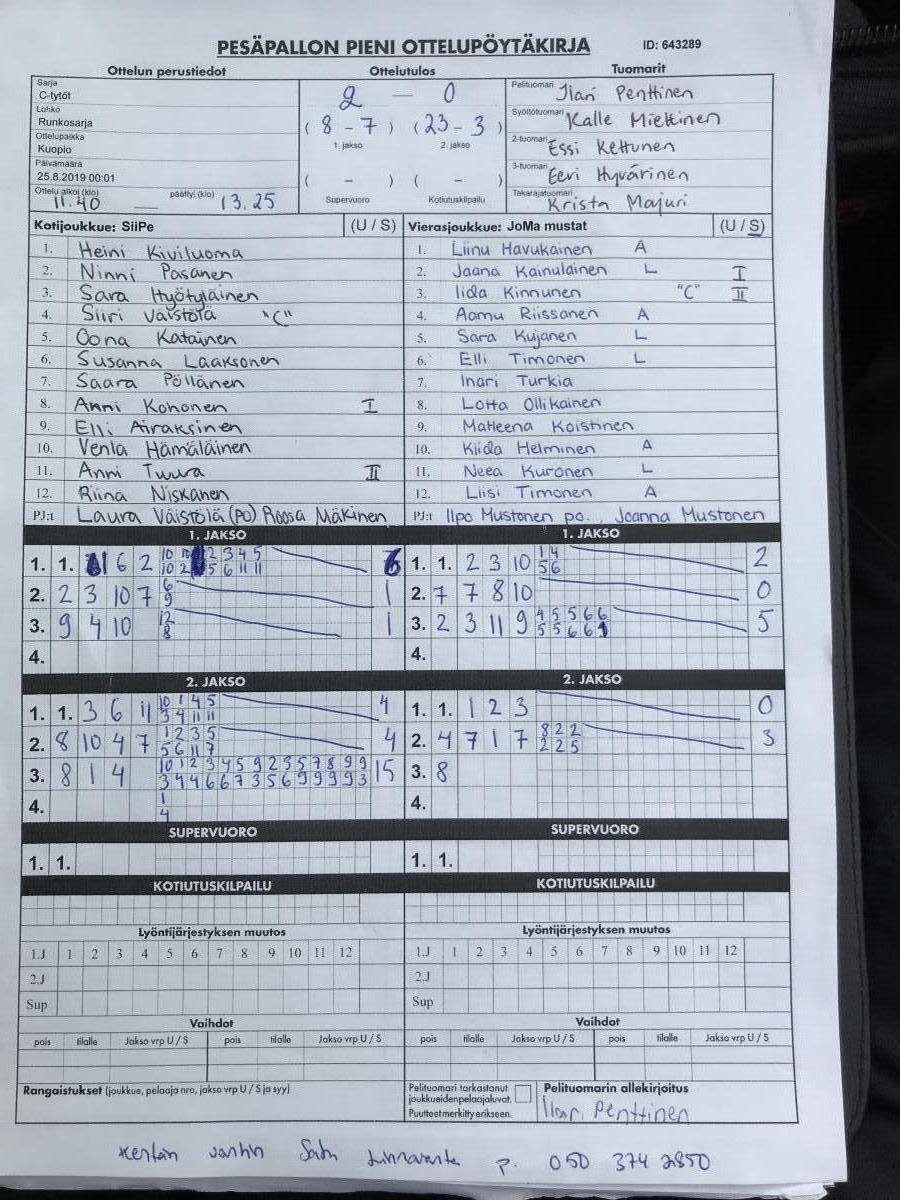 PESÄPALLON PIENI OTTELUPÖYTÄKIRJA ID: 643289
Ottelun perustiedot Ottelutulos Tuomarit
Sarja
C-tytöt
Lohko
Runkosarja
Ottelupaikka
Kuopio
Päivämäärä
25.8.2019 00:01
Ottelu alkoi (klo) 11.40 päättyi (klo) 13.25
2 — 0
( 8 - 7 ) ( 23 - 3 )
1. jakso 2. jakso
( - ) ( - )
Supervuoro Kotiutuskilpailu
Pelituomari Ilari Penttinen
Syöttötuomari Kalle Miettinen
2-tuomari Essi Kettunen
3-tuomari Eevi Hyvärinen
Takarajatuomari Krista Majuri
Kotijoukkue: SiiPe (U / S)
1. Heini Kiviluoma
2. Ninni Pasanen
3. Sara Hyötyläinen
4. Siiri Väistölä "C"
5. Oona Katainen
6. Susanna Laaksonen
7. Saara Pöllänen
8. Anni Kohonen I
9. Elli Airaksinen
10. Venla Hämäläinen
11. Anni Tuura II
12. Riina Niskanen
PJ:t Laura Väistölä (PO) Roosa Mäkinen
Vierasjoukkue: JoMa mustat (U / S)
1. Liinu Havukainen A
2. Jaana Kainulainen L I
3. Iida Kinnunen "C" II
4. Aamu Riissanen A
5. Sara Kujanen L
6. Elli Timonen L
7. Inari Turkia
8. Lotta Ollikainen
9. Matleena Koistinen
10. Kiida Helminen A
11. Neea Kuronen L
12. Liisi Timonen A
PJ:t Ilpo Mustonen po. Joanna Mustonen
1. JAKSO
1. 1. 1 6 2 6
2. 2 3 10 7 6 1
9
3. 9 4 10 12 1
8
4.
1. JAKSO
1. 1. 2 3 10 1 4 2
5 6
2. 7 7 8 10 0
3. 2 3 11 9 4 5 5 6 6 5
5 5 6 6 9
4.
2. JAKSO
1. 1. 3 6 11 10 1 4 5 4
3 4 11 11
2. 8 10 4 7 1 2 3 5 4
5 6 11 7
3. 8 1 4 10 1 2 3 4 5 9 2 3 5 7 8 9 9 15
3 4 4 6 6 7 3 5 6 9 9 9 9 3
4. 1
4
2. JAKSO
1. 1. 1 2 3 0
2. 4 7 1 7 8 2 2 3
2 2 5
3. 8
4.
SUPERVUORO SUPERVUORO
1. 1. 1. 1.
KOTIUTUSKILPAILU KOTIUTUSKILPAILU
Lyöntijärjestyksen muutos Lyöntijärjestyksen muutos
1.J 1 2 3 4 5 6 7 8 9 10 11 12 1.J 1 2 3 4 5 6 7 8 9 10 11 12
2.J 2.J
Sup Sup
Vaihdot Vaihdot
pois tilalle Jakso vrp U / S pois tilalle Jakso vrp U / S pois tilalle Jakso vrp U / S pois tilalle Jakso vrp U / S
Rangaistukset (joukkue, pelaaja nro, jakso vrp U / S ja syy)
Pelituomari tarkastanut
joukkueidenpelaajaluvat.
Puutteetmerkittyerikseen.
Pelituomarin allekirjoitus
Ilari Penttinen
kentän vanhin Satu p. 050 374 2850